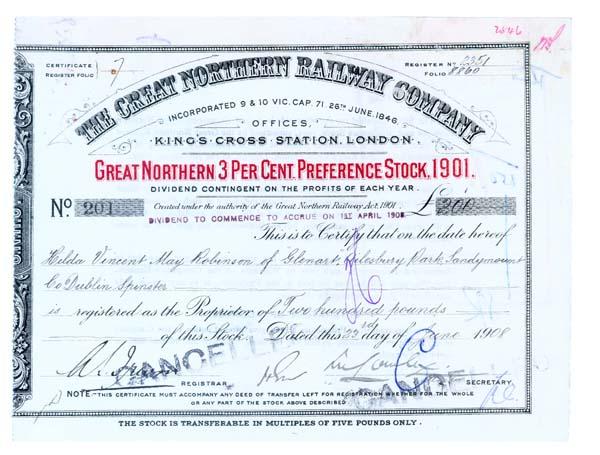 2546
CERTIFICATE
REGISTER FOLIO 7
REGISTER No 2351
FOLIO 8860
THE GREAT NORTHERN RAILWAY COMPANY
INCORPORATED 9 & 10 VIC. CAP. 71. 26TH JUNE. 1846.
OFFICES,
KING'S CROSS STATION, LONDON.
GREAT NORTHERN 3 PER CENT. PREFERENCE STOCK, 1901.
DIVIDEND CONTINGENT ON THE PROFITS OF EACH YEAR.
No 201
Created under the authority of the Great Northern Railway Act, 1901.
£200
DIVIDEND TO COMMENCE TO ACCRUE ON 1ST APRIL 1908
This is to Certify that on the date hereof
Hilda Vincent May Robinson of Glenart, Park, Sandymount
Co Dublin Spinster
is registered as the Proprietor of Two hundred pounds
of this Stock. Dated this 23rd day of June 1908
CANCELLED
REGISTRAR
CANCELLED
SECRETARY
NOTE. THIS CERTIFICATE MUST ACCOMPANY ANY DEED OF TRANSFER LEFT FOR REGISTRATION WHETHER FOR THE WHOLE
OR ANY PART OF THE STOCK ABOVE DESCRIBED.
THE STOCK IS TRANSFERABLE IN MULTIPLES OF FIVE POUNDS ONLY.